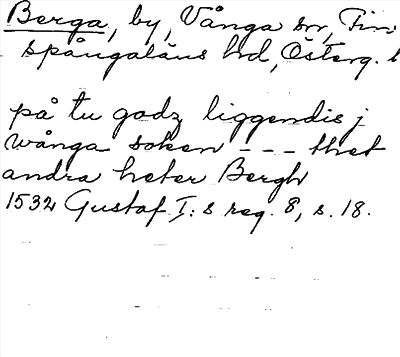 Berga, by, Vånga sn, Fin
spångaläns hd, Österg. l
på tu godz liggendis j
wånga soken --- thet
andra heter Bergh
1532 Gustaf I:s reg. 8, s. 18.